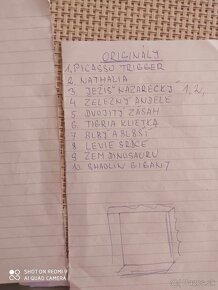 ORIGINALY
1, PICASSO TRIGGER
2 NATHALIA
3 JEŽIŠ NAZARETSKÝ 1, 2,
4 ŽELEZNÝ ANDELE
5 DVOJITÝ ZÁSAH
6 TIGRIA KLIETKA
7 BLBÝ A BLBŠÍ
8 LEVIE SRDCE
9 ZEM DINOSAUROV
10 SHAOLIN GIGANT
SHOT ON REDMI 9
AI QUAD CAMERA